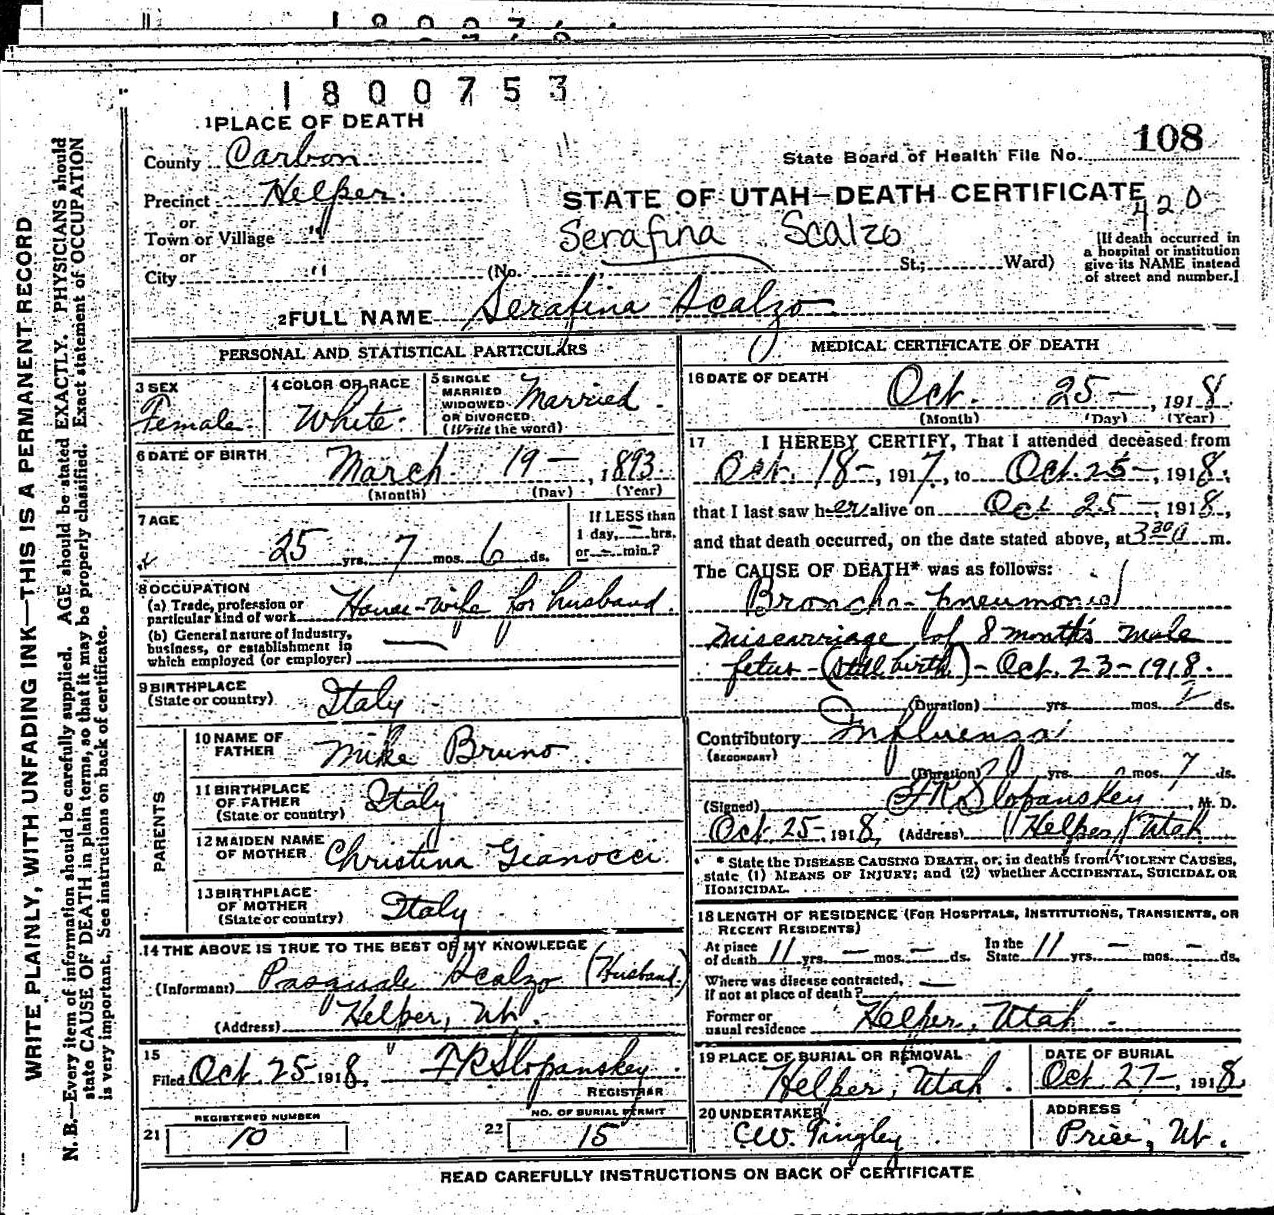 1800753
1 PLACE OF DEATH
County Carbon
State Board of Health File No. 108
Precinct Helper.
STATE OF UTAH—DEATH CERTIFICATE
420
or
Town or Village "
Serafina Scalzo
or
City " (No. St.; Ward)
[If death occurred in
a hospital or institution
give its NAME instead
of street and number.]
2 FULL NAME Serafina Scalzo
PERSONAL AND STATISTICAL PARTICULARS
3 SEX
Female.
4 COLOR OR RACE
White.
5 SINGLE
MARRIED
WIDOWED
OR DIVORCED
(Write the word)
Married.
6 DATE OF BIRTH
March 19 — , 1893
(Month) (Day) (Year)
7 AGE
25 yrs. 7 mos. 6 ds.
If LESS than
1 day, — hrs.
or — min.?
8 OCCUPATION
(a) Trade, profession or
particular kind of work House-wife for husband.
(b) General nature of industry,
business, or establishment in
which employed (or employer) —
9 BIRTHPLACE
(State or country) Italy
PARENTS
10 NAME OF
FATHER Mike Bruno
11 BIRTHPLACE
OF FATHER
(State or country) Italy
12 MAIDEN NAME
OF MOTHER Christina Gianocci.
13 BIRTHPLACE
OF MOTHER
(State or country) Italy
14 THE ABOVE IS TRUE TO THE BEST OF MY KNOWLEDGE
(Informant) Pasquale Scalzo (Husband)
(Address) Helper, Ut.
15
Filed Oct. 25 1918, F R Slopanskey.
REGISTRAR
REGISTERED NUMBER
21 10
NO. OF BURIAL PERMIT
22 15
MEDICAL CERTIFICATE OF DEATH
16 DATE OF DEATH
Oct. 25 — , 1918.
(Month) (Day) (Year)
17 I HEREBY CERTIFY, That I attended deceased from
Oct. 18 —, 1917, to Oct. 25 —, 1918,
that I last saw her alive on Oct 25 —, 1918,
and that death occurred, on the date stated above, at 3 30 a m.
The CAUSE OF DEATH* was as follows:
Broncho-pneumonia
miscarriage of 8 months male
fetus - (still birth) - Oct. 23 - 1918.
(Duration) yrs. mos. 2 ds.
Contributory Influenza
(SECONDARY)
(Duration) yrs. mos. 7 ds.
(Signed) F R Slopanskey, M. D.
Oct. 25 - 1918, (Address) Helper Utah
* State the DISEASE CAUSING DEATH, or, in deaths from VIOLENT CAUSES,
state (1) MEANS OF INJURY; and (2) whether ACCIDENTAL, SUICIDAL OR
HOMICIDAL.
18 LENGTH OF RESIDENCE (FOR HOSPITALS, INSTITUTIONS, TRANSIENTS, OR
RECENT RESIDENTS)
At place
of death 11 yrs. — mos. — ds.
In the
State 11 yrs. — mos. — ds.
Where was disease contracted,
if not at place of death? —
Former or
usual residence Helper, Utah.
19 PLACE OF BURIAL OR REMOVAL
Helper, Utah.
DATE OF BURIAL
Oct 27 —, 1918
20 UNDERTAKER
CW. Tingley
ADDRESS
Price, Ut.
READ CAREFULLY INSTRUCTIONS ON BACK OF CERTIFICATE
WRITE PLAINLY, WITH UNFADING INK—THIS IS A PERMANENT RECORD
N. B.—Every item of information should be carefully supplied. AGE should be stated EXACTLY. PHYSICIANS should
state CAUSE OF DEATH in plain terms, so that it may be properly classified. Exact statement of OCCUPATION
is very important. See instructions on back of certificate.